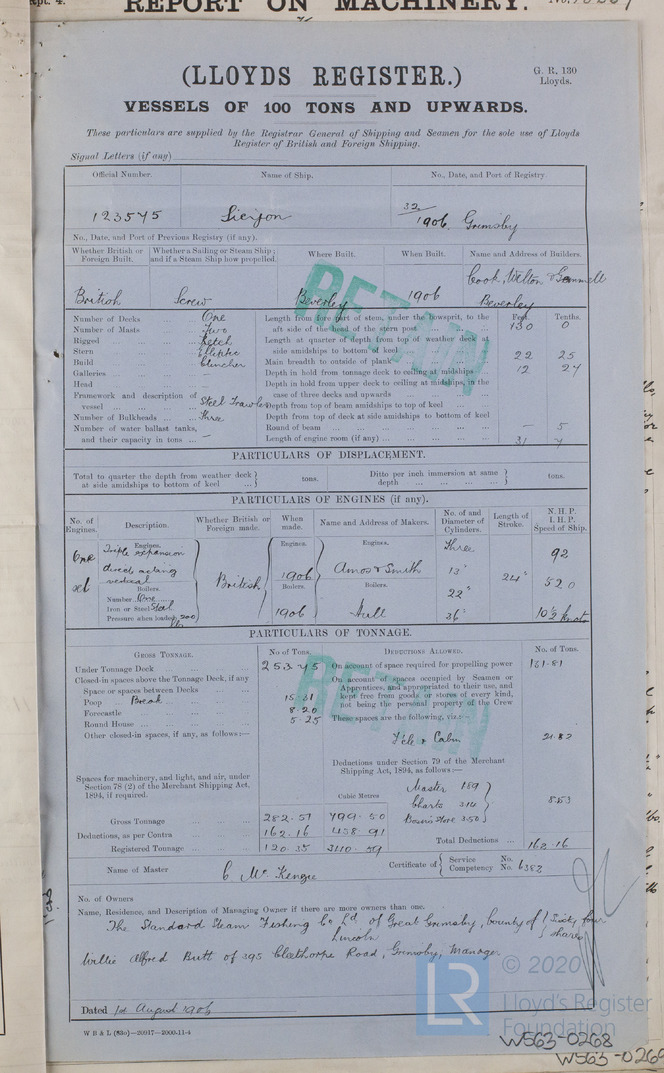 Rpt. 4.
REPORT ON MACHINERY.
(LLOYDS REGISTER.)
G. R. 130
Lloyds.
VESSELS OF 100 TONS AND UPWARDS.
These particulars are supplied by the Registrar General of Shipping and Seamen for the sole use of Lloyds
Register of British and Foreign Shipping.
Signal Letters (if any)
Official Number.
Name of Ship.
No., Date, and Port of Registry.
123545
32
1906 Grimsby
No., Date, and Port of Previous Registry (if any).
Whether British or Foreign Built.
Whether a Sailing or Steam Ship; and if a Steam Ship how propelled.
Where Built.
When Built.
Name and Address of Builders.
British
Screw
Beverley
1906
Cook, Welton & Gemmell
Beverley
RETAIN
Number of Decks One
Number of Masts Two
Rigged Ketch
Stern Elliptic
Build Clincher
Galleries
Head
Framework and description of vessel Steel Trawler
Number of Bulkheads Three
Number of water ballast tanks, and their capacity in tons —
Feet. Tenths.
Length from fore part of stem, under the bowsprit, to the aft side of the head of the stern post 130 0
Length at quarter of depth from top of weather deck at side amidships to bottom of keel
Main breadth to outside of plank 22 25
Depth in hold from tonnage deck to ceiling at midships 12 24
Depth in hold from upper deck to ceiling at midships, in the case of three decks and upwards
Depth from top of beam amidships to top of keel
Depth from top of deck at side amidships to bottom of keel
Round of beam — 5
Length of engine room (if any) 31 7
PARTICULARS OF DISPLACEMENT.
Total to quarter the depth from weather deck at side amidships to bottom of keel tons.
Ditto per inch immersion at same depth tons.
PARTICULARS OF ENGINES (if any).
No. of Engines.
Description.
Whether British or Foreign made.
When made.
Name and Address of Makers.
No. of and Diameter of Cylinders.
Length of Stroke.
N. H. P.
I. H. P.
Speed of Ship.
One set
Engines.
Triple expansion
direct acting
vertical
Boilers.
Number One
Iron or Steel Steel
Pressure when loaded 200 lbs
British
Engines.
1906
Boilers.
1906
Engines.
Amos & Smith
Boilers.
Hull
Three
13"
22"
36"
24"
92
520
10½ knots
PARTICULARS OF TONNAGE.
GROSS TONNAGE.
No. of Tons.
DEDUCTIONS ALLOWED.
No. of Tons.
Under Tonnage Deck 253.45
Closed-in spaces above the Tonnage Deck, if any
Space or spaces between Decks
Poop Break 15.61
Forecastle 8.20
Round House 5.25
Other closed-in spaces, if any, as follows:—
Spaces for machinery, and light, and air, under Section 78 (2) of the Merchant Shipping Act, 1894, if required.
On account of space required for propelling power 131.81
On account of spaces occupied by Seamen or Apprentices, and appropriated to their use, and kept free from goods or stores of every kind, not being the personal property of the Crew
These spaces are the following, viz.:—
F'cle & Cabin 21.82
RETAIN
Deductions under Section 79 of the Merchant Shipping Act, 1894, as follows:—
Master 189
Charts 314
Bosn's Store 350
8.53
Cubic Metres
Gross Tonnage 282.51 799.50
Deductions, as per Contra 162.16 458.91
Registered Tonnage 120.35 340.59
Total Deductions 162.16
Name of Master C McKenzie
Certificate of Service Competency No. No. 6382
No. of Owners
Name, Residence, and Description of Managing Owner if there are more owners than one.
The Standard Steam Fishing Co Ld of Great Grimsby, County of Lincoln Sixty four shares
Willie Alfred Butt of 395 Cleethorpe Road, Grimsby, Manager.
Dated 1st August 1906
W B & L (83o)—20917—2000-11-4
© 2020
LR
Lloyd's Register
Foundation
W563-0268
W563-0268